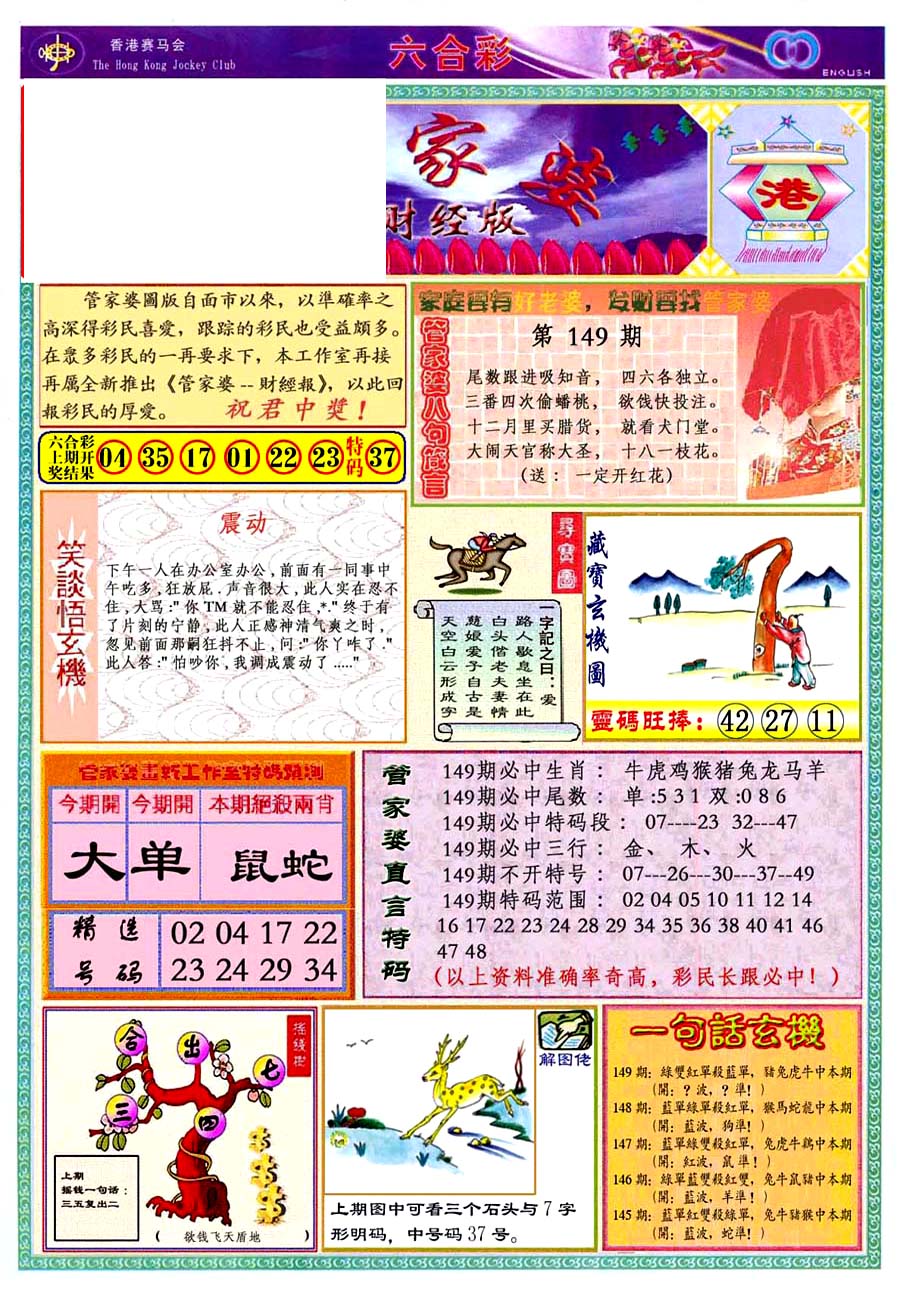 香港赛马会
The Hong Kong Jockey Club
六合彩
ENGLISH
家婆
财经版
港
管家婆圖版自面市以來，以準確率之
高深得彩民喜愛，跟踪的彩民也受益頗多。
在眾多彩民的一再要求下，本工作室再接
再厲全新推出《管家婆--財經報》，以此回
報彩民的厚愛。 祝君中獎！
六合彩
上期开
奖结果
04 35 17 01 22 23 特码 37
家庭要有好老婆，发财要找管家婆
管家婆八句箴言
第 149 期
尾数跟进吸知音， 四六各独立。
三番四次偷蟠桃， 欲饯快投注。
十二月里买腊货， 就看犬门堂。
大闹天官称大圣， 十八一枝花。
(送： 一定开红花)
笑談悟玄機
震动
下午一人在办公室办公,前面有一同事中
午吃多,狂放屁.声音很大,此人实在忍不
住,大骂:"你TM就不能忍住,*."终于有
了片刻的宁静,此人正感神清气爽之时,
忽见前面那嗣狂抖不止,问:"你丫咋了."
此人答:"怕吵你,我调成震动了....."
尋寶圖
一字記之曰：爱
路人歇息坐在此
白头偕老夫妻情
慧娘爱子自古是
天空白云形成字
藏寶玄機圖
靈碼旺捧：42 27 11
管家婆畫新工作室特碼預測
今期開 今期開 本期絕殺兩肖
大 单 鼠蛇
精选
号码
02 04 17 22
23 24 29 34
管家婆直言特码
149期必中生肖： 牛虎鸡猴猪兔龙马羊
149期必中尾数： 单:5 3 1 双:0 8 6
149期必中特码段： 07----23 32---47
149期必中三行： 金、 木、 火
149期不开特号： 07---26---30---37--49
149期特码范围： 02 04 05 10 11 12 14
16 17 22 23 24 28 29 34 35 36 38 40 41 46
47 48
(以上资料准确率奇高，彩民长跟必中！)
摇錢樹
合
出
七
三
四
上期
摇钱一句话：
三五复出二
( 欲钱飞天盾地 )
解图佬
上期图中可看三个石头与7字
形明码，中号码37号。
一句話玄機
149期：綠雙紅單殺藍單，豬兔虎牛中本期
(開：？波，？準！)
148期：藍單綠單殺紅單，猴馬蛇龍中本期
(開：藍波，狗準！)
147期：藍單綠雙殺紅單，兔虎牛鷄中本期
(開：紅波，鼠準！)
146期：綠單藍雙殺紅雙，兔牛鼠豬中本期
(開：藍波，羊準！)
145期：藍單紅雙殺綠單，兔牛豬猴中本期
(開：藍波，蛇準！)